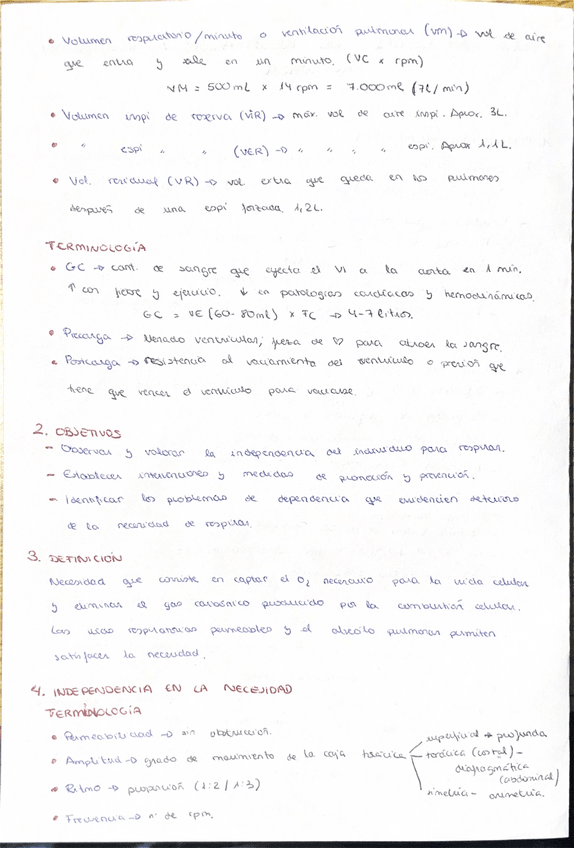 • Volumen respiratorio/minuto o ventilación pulmonar (VM) → vol de aire
que entra y sale en un minuto. (VC x rpm)
VM = 500 mL x 14 rpm = 7.000 mL (7L/min)
• Volumen inspi de reserva (VIR) → máx. vol de aire inspi. Aprox. 3L.
• " espi " " (VER) → " " " " espi. Aprox 1,1L.
• Vol. residual (VR) → vol extra que queda en los pulmones
después de una espi forzada. 1,2L.
TERMINOLOGÍA
• GC → cant. de sangre que eyecta el VI a la aorta en 1 min.
↑ con fiebre y ejercicio. ↓ en patologías cardíacas y hemodinámicas.
GC = VE (60-80ml) x FC → 4-7 litros.
• Precarga → llenado ventricular, fuerza de ♡ para atraer la sangre.
• Postcarga → resistencia al vaciamiento del ventrículo o presión que
tiene que vencer el ventrículo para vaciarse.
2. OBJETIVOS
- Observar y valorar la independencia del individuo para respirar.
- Establecer intervenciones y medidas de promoción y prevención.
- Identificar los problemas de dependencia que evidencien deterioro
de la necesidad de respirar.
3. DEFINICIÓN
Necesidad que consiste en captar el O₂ necesario para la vida celular
y eliminar el gas carbónico producido por la combustión celular.
Las vías respiratorias permeables y el alveolo pulmonar permiten
satisfacer la necesidad.
4. INDEPENDENCIA EN LA NECESIDAD
TERMINOLOGÍA
• Permeabilidad → sin obstrucción.
• Amplitud → grado de movimiento de la caja torácica
superficial → profunda
torácica (costal) -
diafragmática
(abdominal)
simetría - asimetría.
• Ritmo → proporción (1:2 / 1:3)
• Frecuencia → nº de rpm.